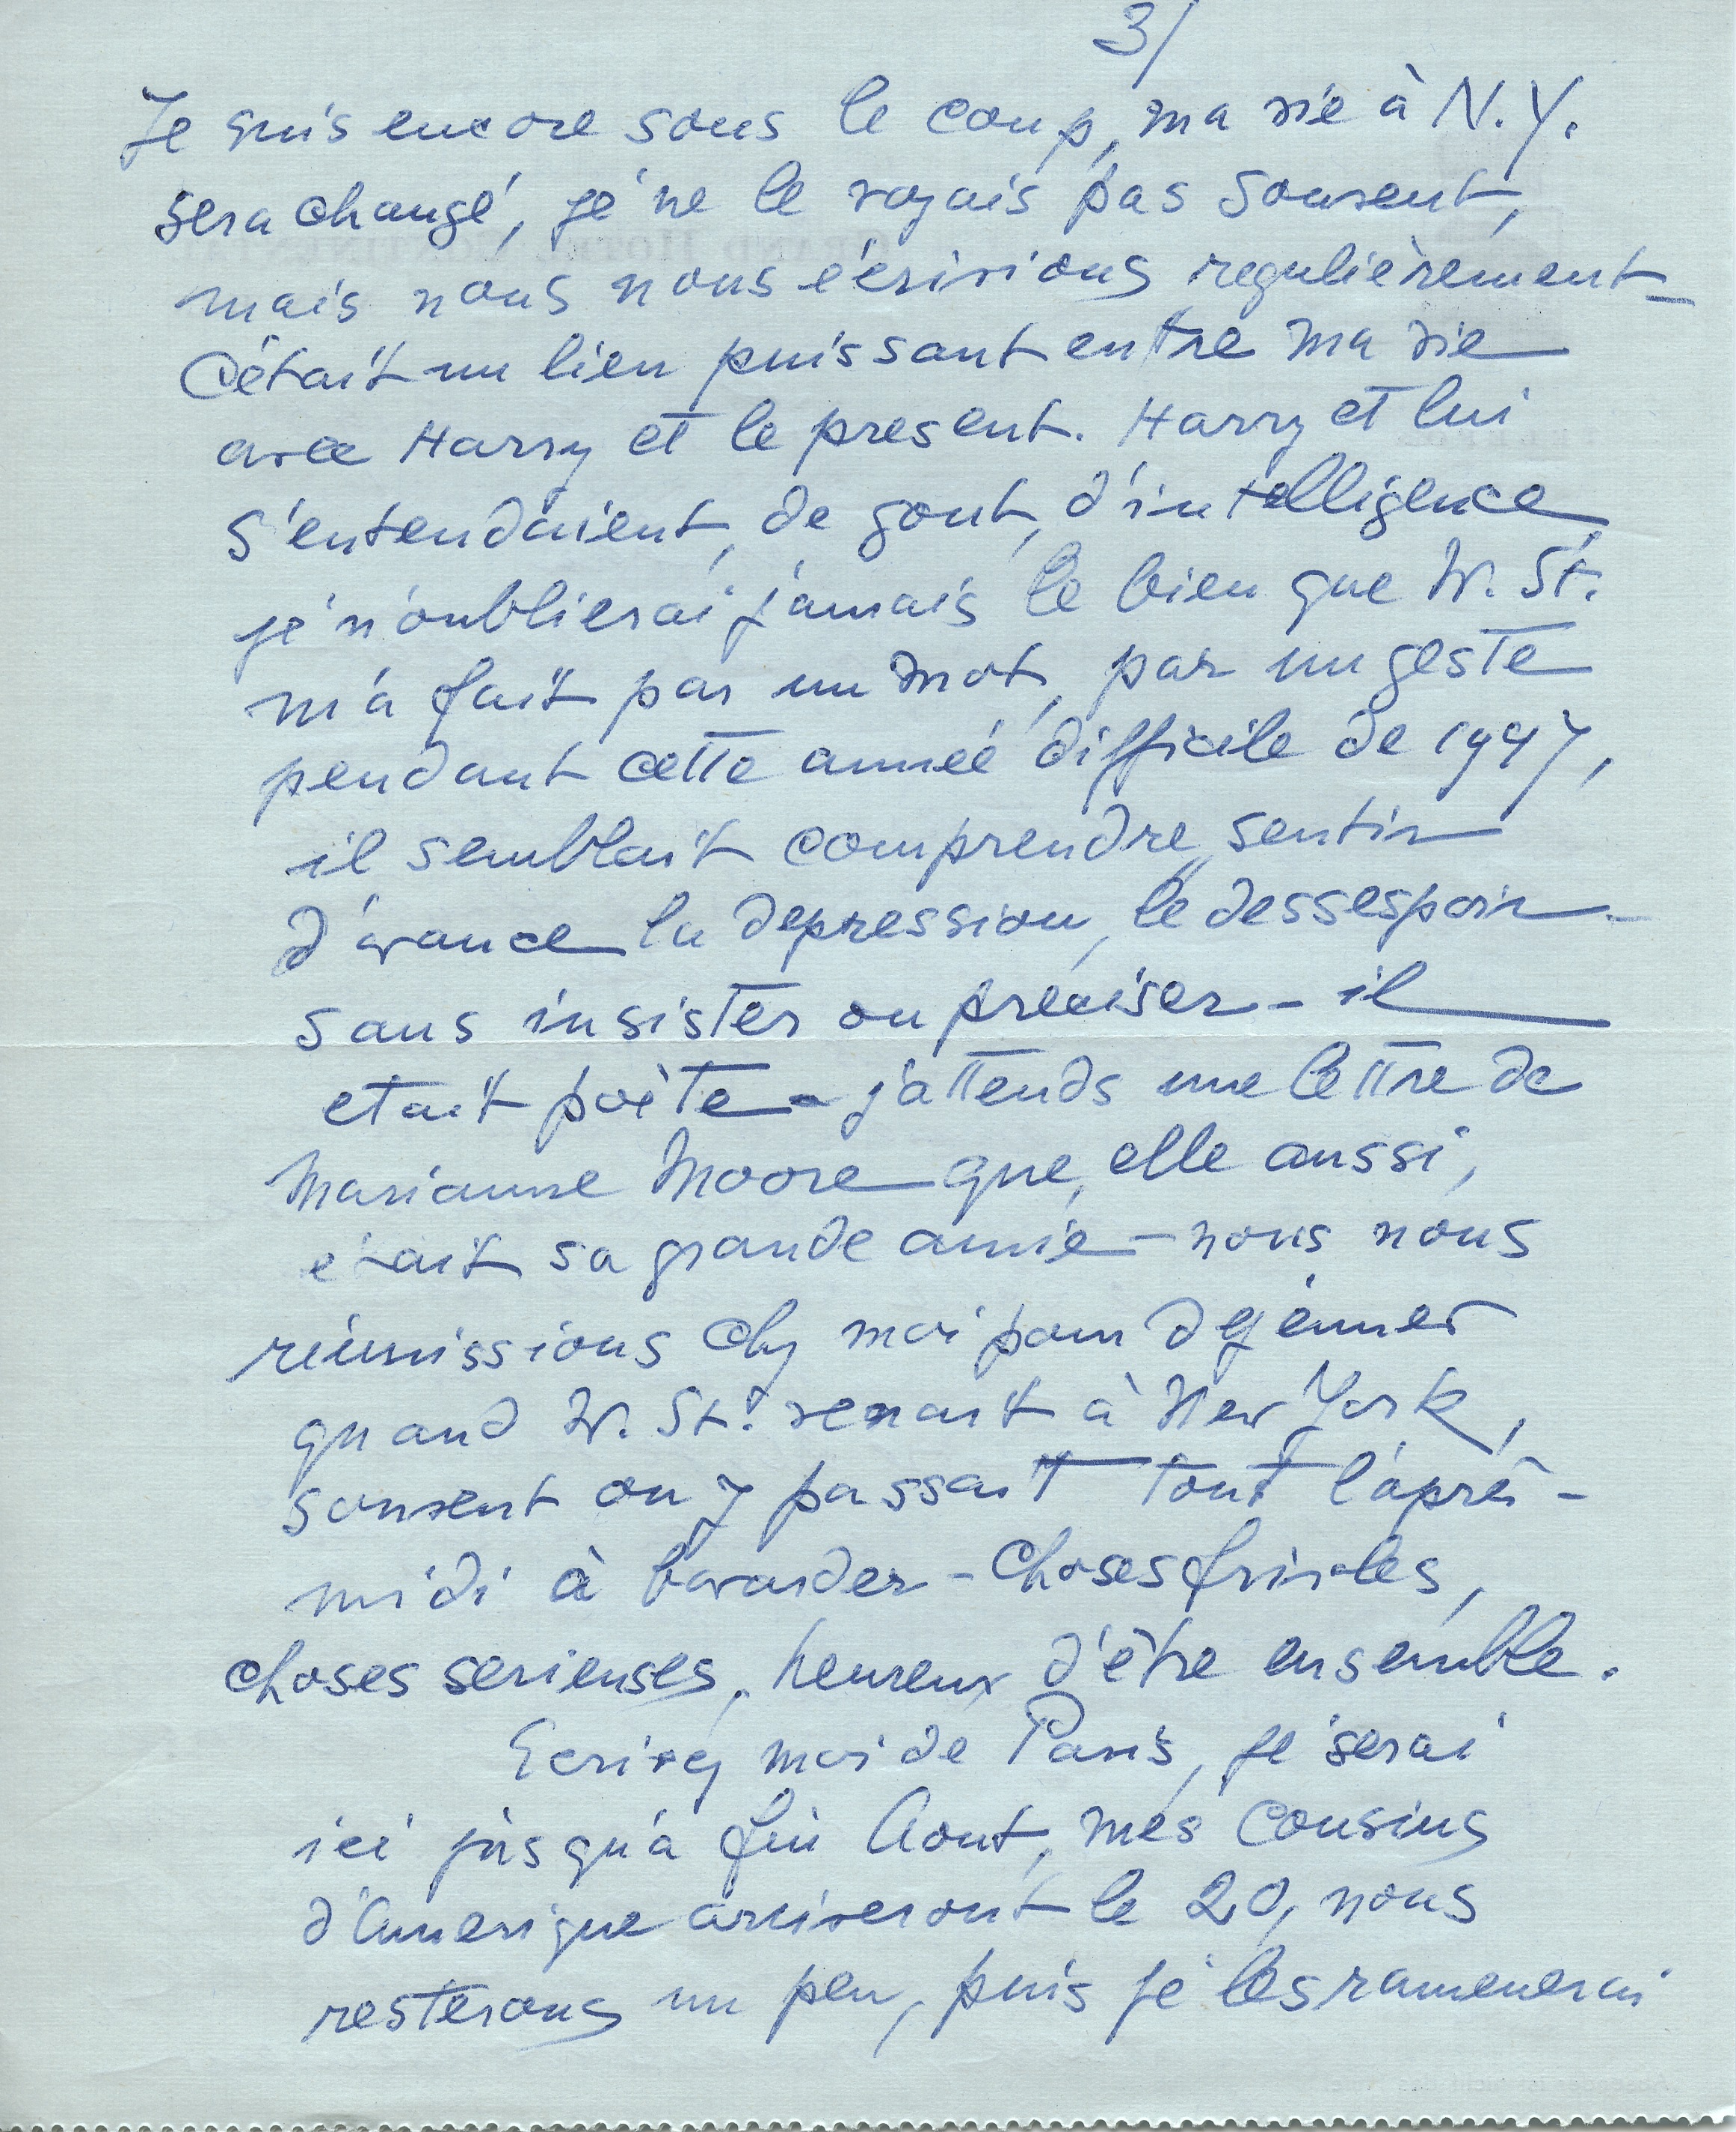 3/
Je suis encore sous le coup, ma vie à N.Y.
sera changé, je ne le voyais pas souvent,
mais nous nous écrivions regulièrement_
C'était un lien puissant entre ma vie
avec Harry et le present. Harry et lui
s'entendaient, de gout, d'intelligence,
je n'oublierai jamais le bien que W. St.
m'a fait par un mot, par un geste
pendant cette année difficile de 1947,
il semblait comprendre, sentir
d'avance la depression, le dessespoir_
sans insister ou preciser - il
etait poète - j'attends une lettre de
Marianne Moore que, elle aussi,
etait sa grande amie - nous nous
réunissions chez moi pour dejeuner
quand W. St. venait à New York,
souvent on y passait tout l'après-
midi à bavarder - choses frivoles,
choses serieuses, heureux d'être ensemble.
Ecrivez moi de Paris, je serai
ici jusqu'à fin Aout, mes cousins
d'Amerique arriveront le 20, nous
resterons un peu, puis je les ramenerai